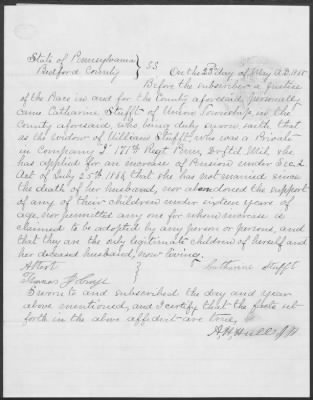 State of Pennsylvania }
Bedford County } SS On the 23d day of May A.D. 1868
Before the subscriber a Justice
of the Peace in and for the County aforesaid, personally
came Catharine Stufft of Union Township in the
County aforesaid, who being duly sworn saith that
as the widow of William Stufft, who was a Private
in Company "I" 171st Regt Penn Drafted Mil. she
has applied for an increase of Pension under Sec 2
Act of July 25th 1866, that she has not married since
the death of her husband, nor abandoned the support
of any of their children under sixteen years of
age, nor permitted any one for whom increase is
claimed to be adopted by any person or persons, and
that they are the only legitimate children of herself and
her deceased husband, now living.
Attest } Catharine Stufft
Sworn to and subscribed the day and year
above mentioned, and I certify that the facts set
forth in the above affidavit are true.
A. H. Hull J.P.